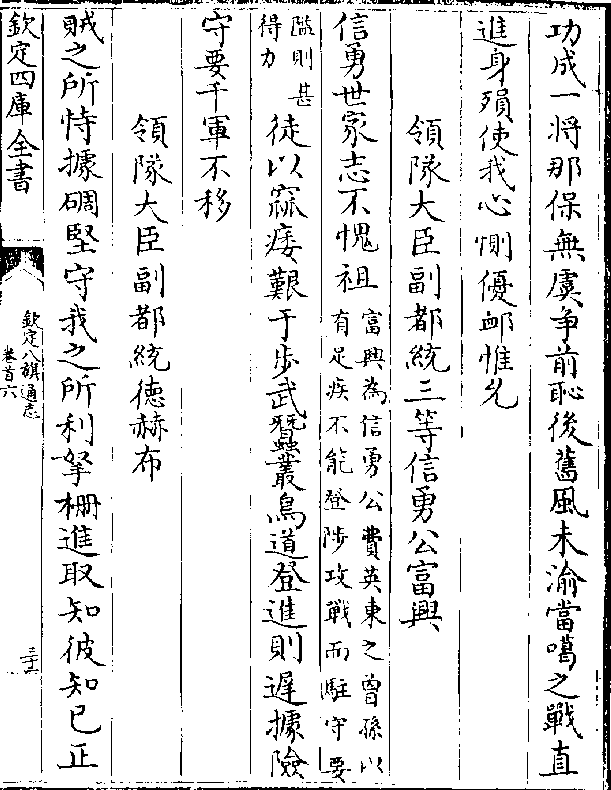 功成一将那保無虞争前恥後舊風未渝當噶之戰直
進身殞使我心惻優卹惟允
領隊大臣副都統三等信勇公富興
信勇世家志不愧祖
富興為信勇公費英東之曾孫以
有足疾不能登陟攻戰而駐守要
隘則甚
得力
徒以痿艱于步武蠶叢鳥道登進則遲據險
守要千軍不移
領隊大臣副都統德赫布
賊之所恃據碉堅守我之所利拏栅進取知彼知已正
欽定四庫全書
欽定八旗通志
卷首六